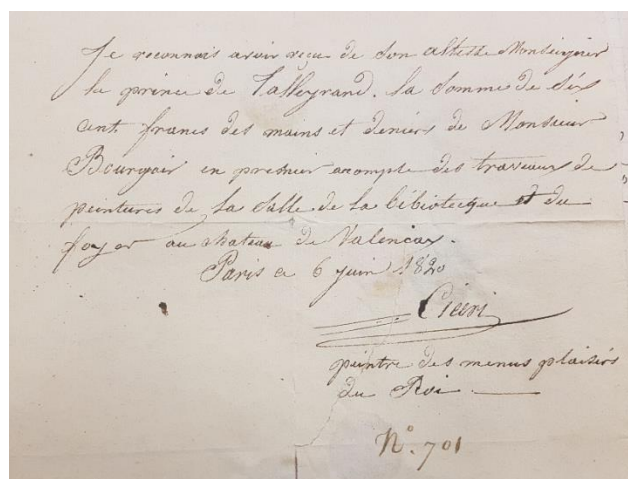 Je reconnais avoir reçu de Son altesse Monseigneur
le prince de Talleyrand. la Somme de Six
cent francs des mains et deniers de Monsieur
Bourgoin en premier acompte des travaux de
peintures de la Salle de la bibiotecque et du
foyer au chateau de Valencay.
Paris ce 6 juin 1820
Ciceri
peintre des menus plaisirs
du Roi
N°. 701